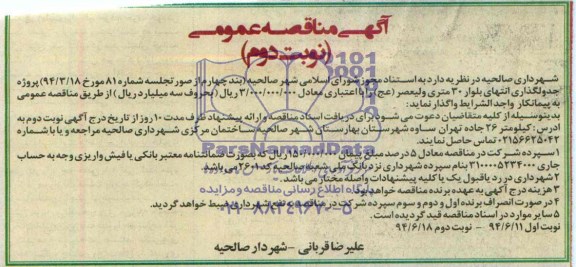 آگهی مناقصه عمومی
(نوبت دوم)
شهرداری صالحیه در نظریه دارد به استناد مجوز شورای اسلامی شهر صالحیه (بند چهارم از صور تجلسه شماره ۸۱ مورخ ۹۴/۳/۱۸) پروژه
جدولگذاری انتهای بلوار ۳۰ متری ولیعصر (عج) را با اعتباری معادل ۳/۰۰۰/۰۰۰/۰۰۰ ریال (بحروف سه میلیارد ریال) از طریق مناقصه عمومی
به پیمانکار واجد الشرایط واگذار نماید:
بدینوسیله از کلیه متقاضیان دعوت می شود برای دریافت اسناد مناقصه و ارائه پیشنهاد ظرف مدت ۱۰ روز از تاریخ درج آگهی نوبت دوم به
ادرس: کیلومتر ۲۶ جاده تهران ساوه شهرستان بهارستان شهر صالحیه ساختمان مرکزی شهرداری صالحیه مراجعه و یا با شماره
۰۲۱۵۶۶۲۵۰۴۲ تماس حاصل نمایند.
۱ سپرده شرکت در مناقصه معادل ۵ درصد مبلغ یعنی ۱۵۰/۰۰۰/۰۰۰ ریال که بصورت ضمانتنامه معتبر بانکی یا فیش واریزی وجه به حساب
جاری ۳۱۰۰۰۰۵۲۳۴۰۰۰ بنام سپرده شهرداری نزد بانک ملی شعبه صالحیه کد ۲۶۰۱ می باشد.
۲ شهرداری در رد یا قبول یک یا کلیه پیشنهادات واصله مختار می باشد.
۳ هزینه درج آگهی به عهده برنده مناقصه خواهد بود.
۴ در صورت انصراف برنده اول و دوم و سوم سپرده شرکت در مناقصه به نفع شهرداری ضبط خواهد گردید.
۵ سایر موارد در اسناد مناقصه قید گردیده است.
نوبت اول ۹۴/۶/۱۱ - نوبت دوم ۹۴/۶/۱۸
علیرضا قربانی - شهردار صالحیه
ParsNamadData
پایگاه اطلاع رسانی مناقصه و مزایده
۰۲۱-۸۸۳۴۹۶۷۰-۵